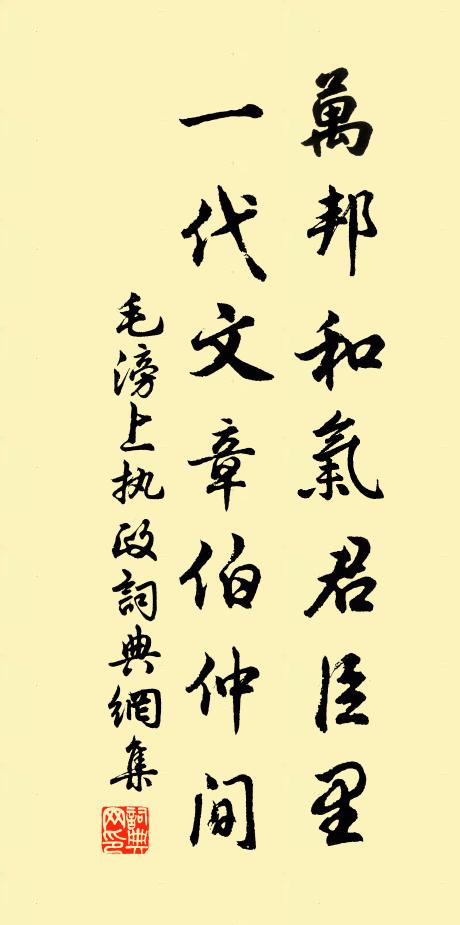 萬邦和氣君臣里
一代文章伯仲間
毛滂上执政詞典網集
詞典網印